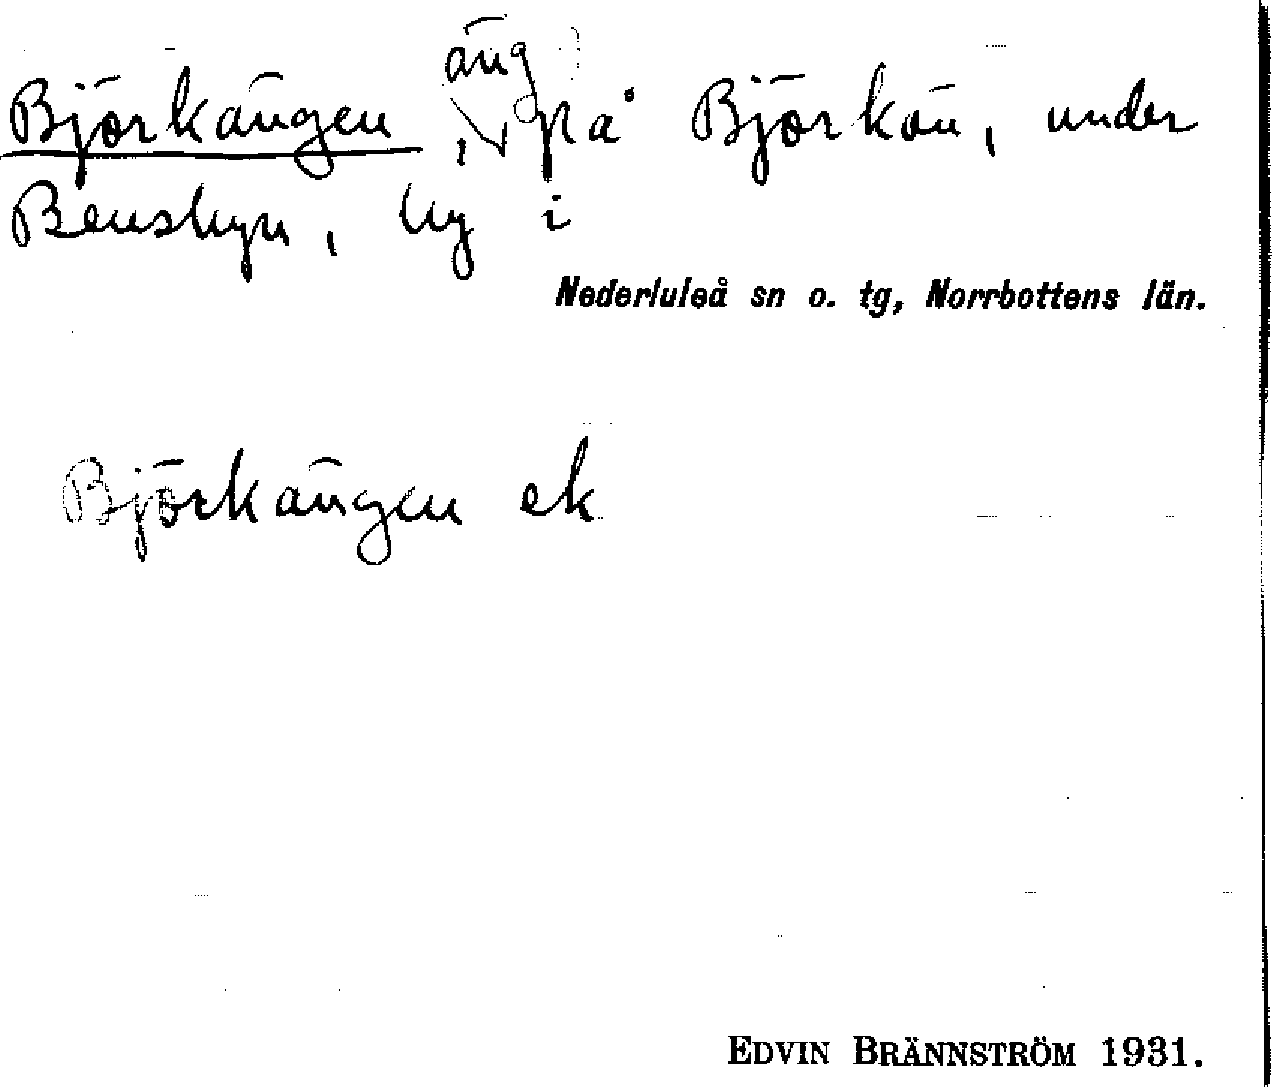 Björkängen, äng på Björkön, under
Bensbyn, by i
Nederluleå sn o. tg, Norrbottens län.
Björkängen ek
EDVIN BRÄNNSTRÖM 1931.